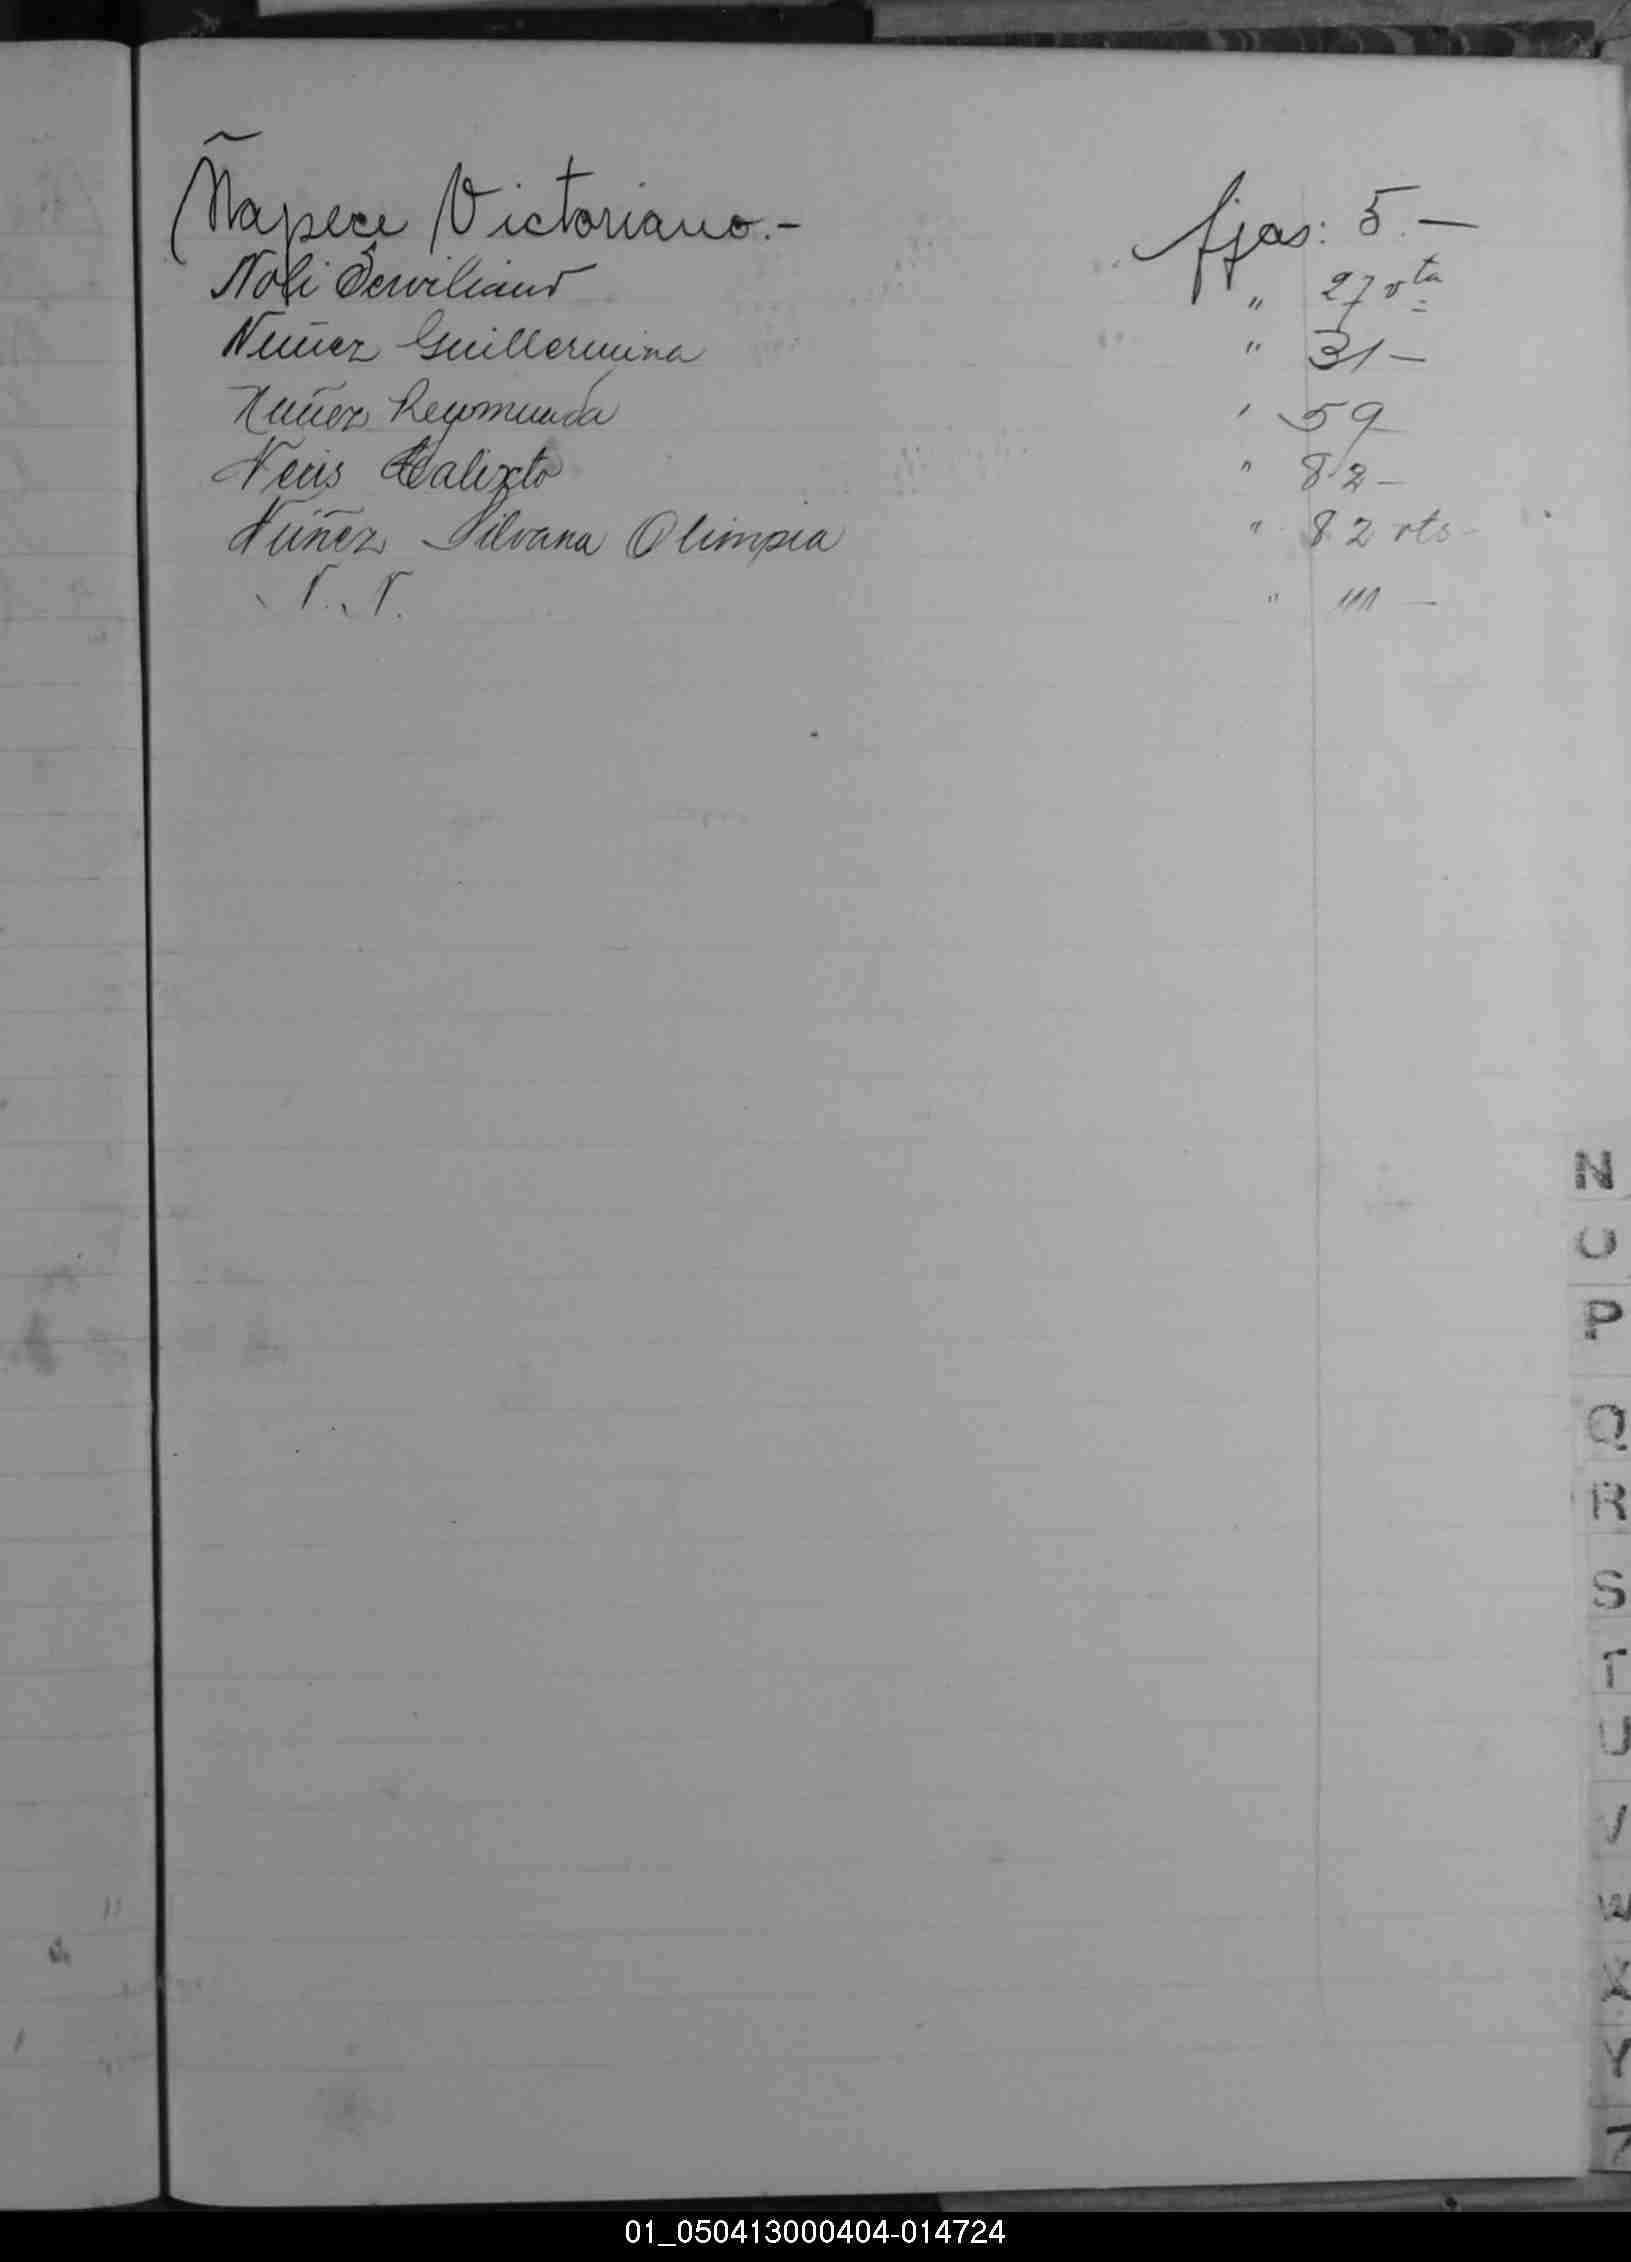 Ñapece Victoriano.- fjas: 5.-
Noli Serviliano " 27 vta
Nuñez Guillermina " 31 -
Nuñez Reymunda " 59
Neris Calixto " 82 -
Núñez Silvana Olimpia " 82 vts -
N. N. " 111 -
N
O
P
Q
R
S
T
U
V
W
X
Y
Z
01_050413000404-014724